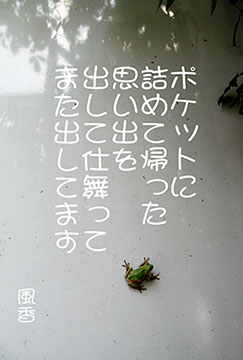 ポケットに
詰めて帰った
思い出を
出して仕舞って
また出してます
風香